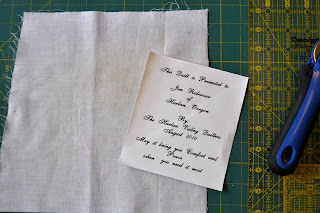 This Quilt is Presented to
Jim Robinson
of
Harlan, Oregon
By
The Harlan Valley Quilters
August 2010
May it bring you Comfort and
Peace
when you need it most